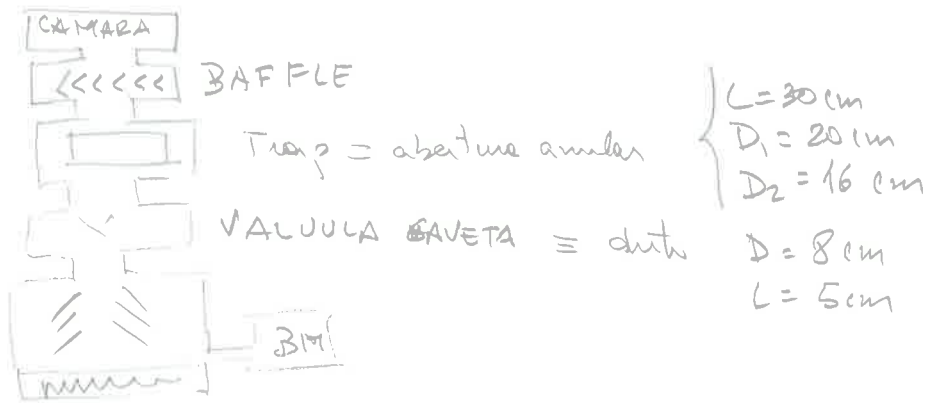 CAMARA
BAFFLE
Trap = abertura anular
L = 30 cm
D₁ = 20 cm
D₂ = 16 cm
VALVULA GAVETA ≡ duto
D = 8 cm
L = 5 cm
BM